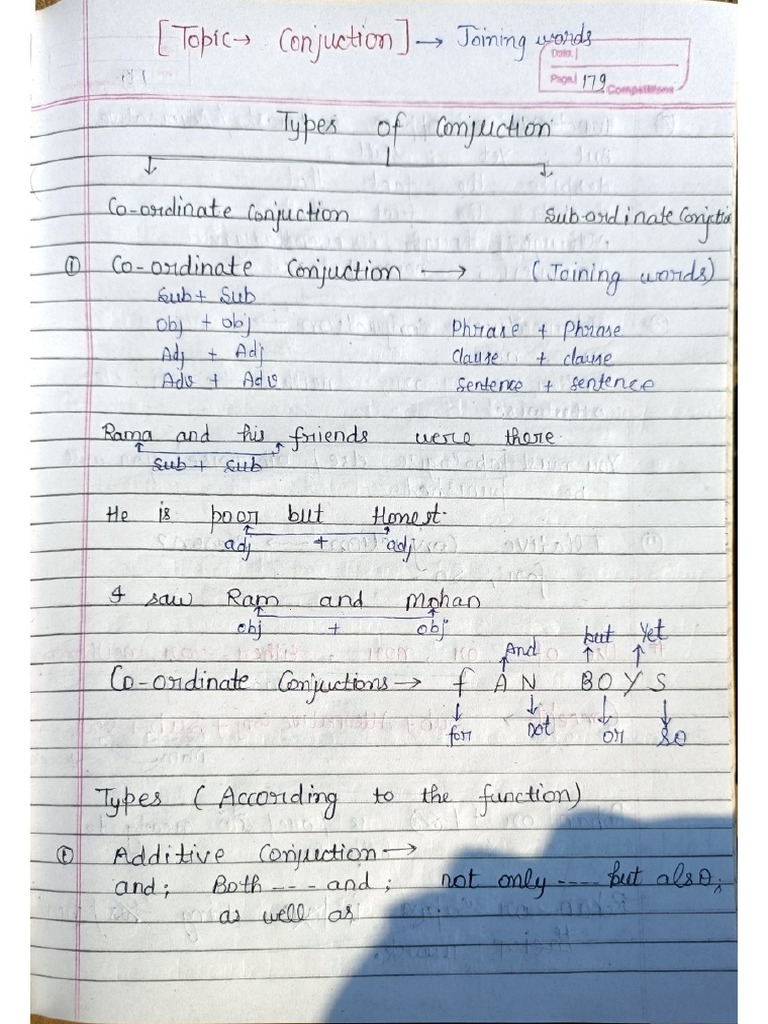 [Topic → Conjuction] → Joining words
Data
Page 179
Competitions
Types of Conjuction
Co-ordinate Conjuction Sub-ordinate Conjctio
① Co-ordinate Conjuction → (Joining words)
Sub + Sub
Obj + obj Phrase + Phrase
Adj + Adj Clause + clause
Adv + Adv Sentence + sentence
Rama and his friends were there.
Sub + Sub
He is poor but Honest.
adj + adj
I saw Ram and Mohan
obj + obj
And but Yet
Co-ordinate Conjuctions → f A N B O Y S
for not or so
Types (According to the function)
① Additive Conjuction →
and; Both ---- and; not only ---- but also;
as well as